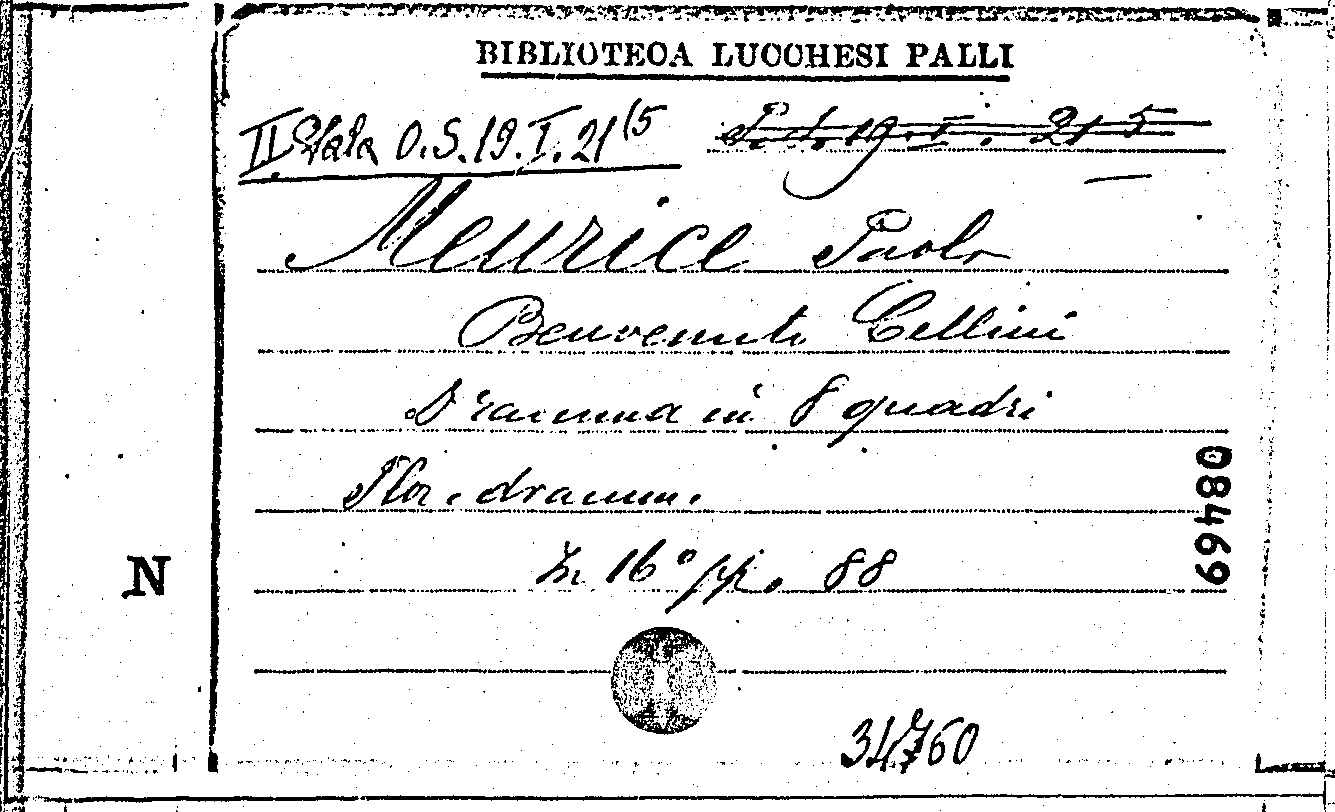 BIBLIOTECA LUCCHESI PALLI
II Sala O.S.19.I.21(5
19.I.21 5
Meurice Paolo
Benvenuto Cellini
Dramma in 8 quadri
Flor. dramm.
In 16° pp. 88
N
08469
34760